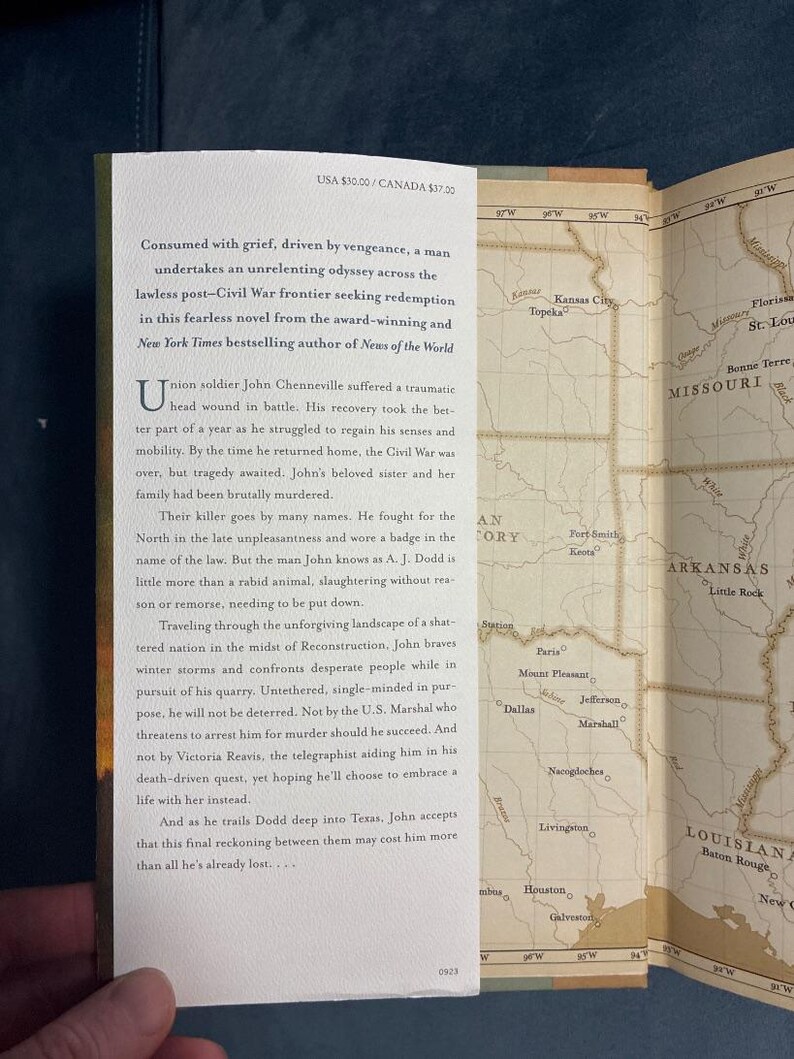 USA $30.00 / CANADA $37.00
Consumed with grief, driven by vengeance, a man
undertakes an unrelenting odyssey across the
lawless post–Civil War frontier seeking redemption
in this fearless novel from the award-winning and
New York Times bestselling author of News of the World
Union soldier John Chenneville suffered a traumatic
head wound in battle. His recovery took the bet-
ter part of a year as he struggled to regain his senses and
mobility. By the time he returned home, the Civil War was
over, but tragedy awaited. John's beloved sister and her
family had been brutally murdered.
Their killer goes by many names. He fought for the
North in the late unpleasantness and wore a badge in the
name of the law. But the man John knows as A. J. Dodd is
little more than a rabid animal, slaughtering without rea-
son or remorse, needing to be put down.
Traveling through the unforgiving landscape of a shat-
tered nation in the midst of Reconstruction, John braves
winter storms and confronts desperate people while in
pursuit of his quarry. Untethered, single-minded in pur-
pose, he will not be deterred. Not by the U.S. Marshal who
threatens to arrest him for murder should he succeed. And
not by Victoria Reavis, the telegraphist aiding him in his
death-driven quest, yet hoping he'll choose to embrace a
life with her instead.
And as he trails Dodd deep into Texas, John accepts
that this final reckoning between them may cost him more
than all he's already lost. . . .
0923
97°W 96°W 95°W 94°W
Kansas
Kansas City
Topeka
AN
TORY
Fort Smith
Keota
Station
Red
Paris
Mount Pleasant
Sabine
Jefferson
Dallas
Marshall
Nacogdoches
Brazos
Livingston
mbus
Houston
Galveston
W 96°W 95°W 94°W
93°W 92°W 91°W
Mississippi
Florissa
Missouri
St. Lou
Osage
Bonne Terre
MISSOURI
Black
White
White
ARKANSAS
Little Rock
Red
Mississippi
LOUISIANA
Baton Rouge
New O
93°W 92°W 91°W